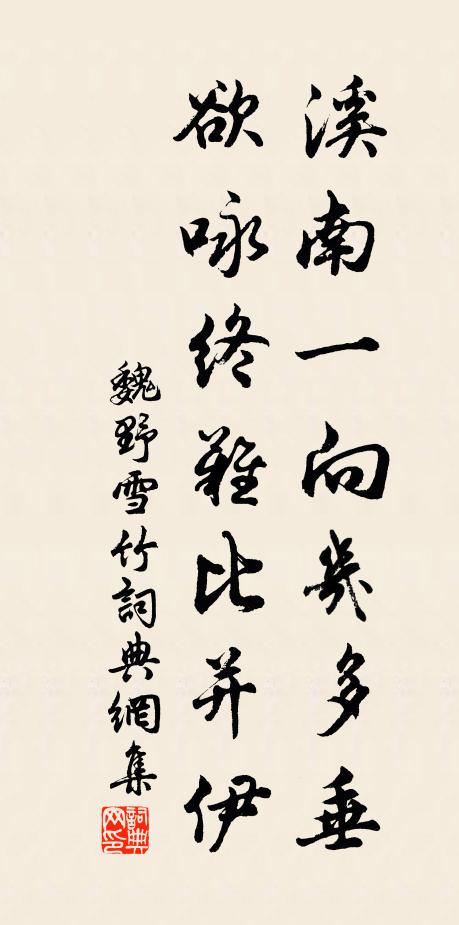 溪南一向幾多垂
欲咏終難比并伊
魏野雪竹詞典網集
詞典网印